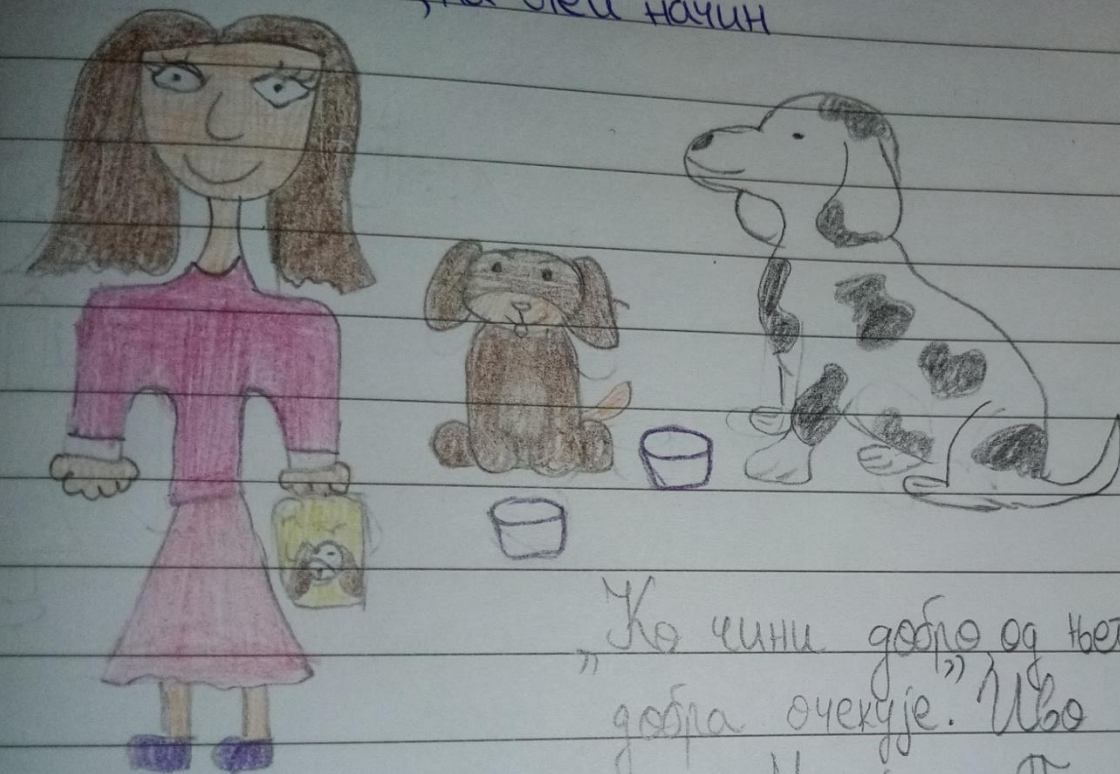 начин
„Ко чини добро од
добра очекује.” Иво